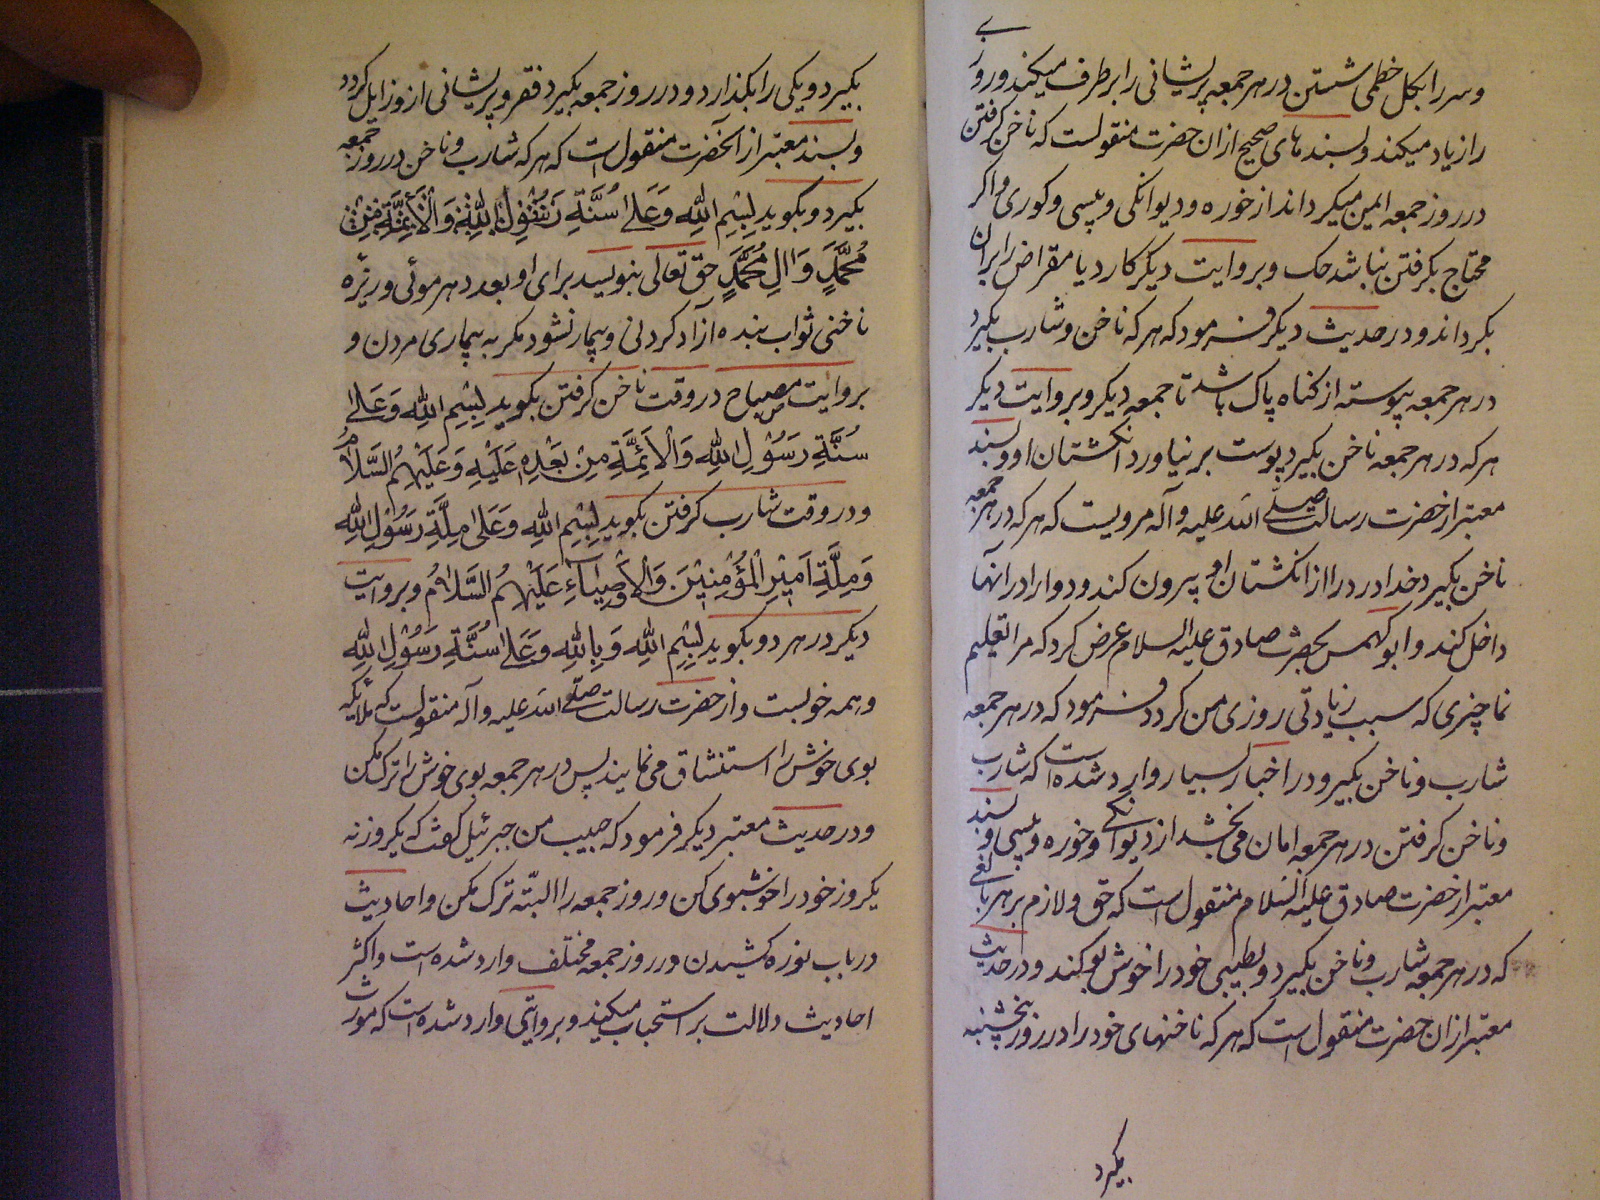 وسر را بکل خطمی شستن در هر جمعه پریشانی را برطرف میکند و روزی
را زیاد میکند و بسند های صحیح از ان حضرت منقولست که ناخن کرفتن
در روز جمعه ایمن میکرداند از خوره و دیوانکی و پیسی و کوری و اکر
محتاج بکرفتن نباشد حک و بروایت دیکر کارد یا مقراض را بران
بکرداند و در حدیث دیکر فرمود که هر که ناخن و شارب بکیرد
در هر جمعه پیوسته از کناه پاک باشد تا جمعه دیکر و بروایت دیکر
هر که در هر جمعه ناخن بکیرد پوست بر نیاورد انکشتان او و بسند
معتبر از حضرت رسالت صلی الله علیه و آله مرویست که هر که در هر جمعه
ناخن بکیرد خدا درد را از انکشتان او بیرون کند و دوا را در آنها
داخل کند و ابو کهمس بحضرت صادق علیه السلام عرض کرد که مرا تعلیم
نما چیزی که سبب زیادتی روزی من کردد فرمود که در هر جمعه
شارب و ناخن بکیر و در اخبار بسیار وارد شده است که شارب
و ناخن کرفتن در هر جمعه امان می بخشد از دیوانکی و خوره و پیسی و بسند
معتبر از حضرت صادق علیه السلام منقول است که حق و لازم بر هر بالغی
که در هر جمعه شارب و ناخن بکیرد و بطیبی خود را خوش بو کند و در حدیث
معتبر از ان حضرت منقول است که هر که ناخنهای خود را در روز پنجشنبه
بکیرد
بکیرد و یکی را بکذارد و در روز جمعه بکیرد فقر و پریشانی از و زایل کردد
و بسند معتبر از آنحضرت منقول است که هر که شارب و ناخن در روز جمعه
بکیرد و بکوید بِسْمِ اللهِ وَعَلى سُنَّةِ رَسُوْلِ اللهِ وَالْاَئِمَّةِ مِنْ
مُحَمَّدٍ وَ الِ مُحَمَّدٍ حق تعالی بنویسد برای او بعدد هر موئی و ریزه
ناخنی ثواب بنده آزاد کردنی و بیمار نشود مکر به بیماری مردن و
بروایت مصباح در وقت ناخن کرفتن بکوید بِسْمِ اللهِ وَعَلى
سُنَّةِ رَسُوْلِ اللهِ وَالْاَئِمَّةِ مِنْ بَعْدِهِ عَلَيْهِ وَعَلَيْهِمُ السَّلَامُ
و در وقت شارب کرفتن بکوید بِسْمِ اللهِ وَعَلى مِلَّةِ رَسُوْلِ اللهِ
وَمِلَّةِ اَمِيْرِ الْمُؤْمِنِيْنَ وَالْاَوْصِيَاءِ عَلَيْهِمُ السَّلَامُ و بروایت
دیکر در هر دو بکوید بِسْمِ اللهِ وَ بِاللهِ وَعَلى سُنَّةِ رَسُوْلِ اللهِ
و همه خوبست و از حضرت رسالت صلی الله علیه و آله منقولست که ملائیکه
بوی خوش را استنشاق می نمایند پس در هر جمعه بوی خوش را ترک مکن
و در حدیث معتبر دیکر فرمود که حبیب من جبرئیل کفت که یکروز نه
یکروز خود را خوشبوی کن و روز جمعه را البتّه ترک مکن و احادیث
در باب نوره کشیدن در روز جمعه مختلف وارد شده است و اکثر
احادیث دلالت بر استحباب میکند و بروایتی وارد شده است که مورث